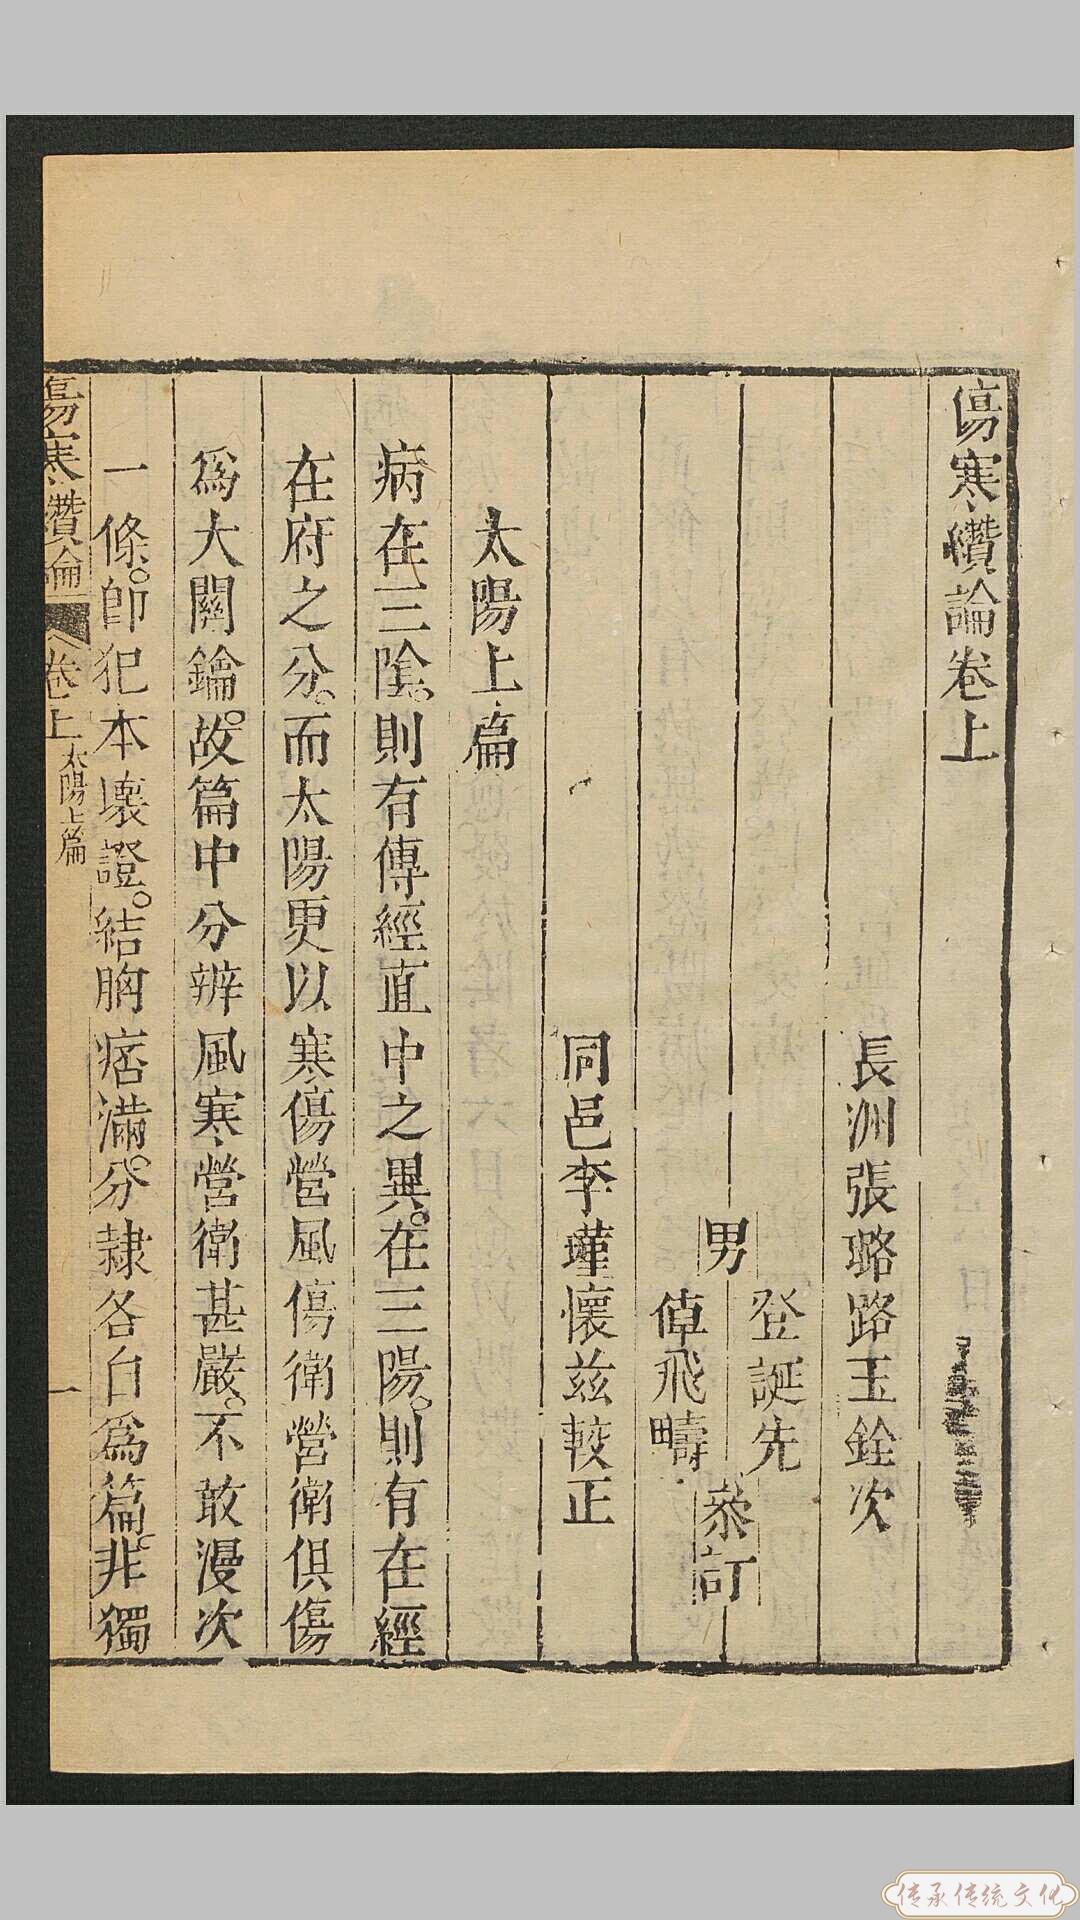 傷寒纘論卷上
長洲張璐路玉銓次
登誕先
男
恭訂
倬飛疇
同邑李瑾懷茲較正
太陽上篇
病在三陰。則有傳經直中之異。在三陽。則有在經
在府之分。而太陽更以寒傷營風傷衛營衛俱傷
爲大關鑰。故篇中分辨風寒營衛甚嚴。不敢漫次
一條。卽犯本壞證。結胸痞滿。分隸各自爲篇。非獨
傷寒纘論
卷上
太陽上篇
一
传承传统文化